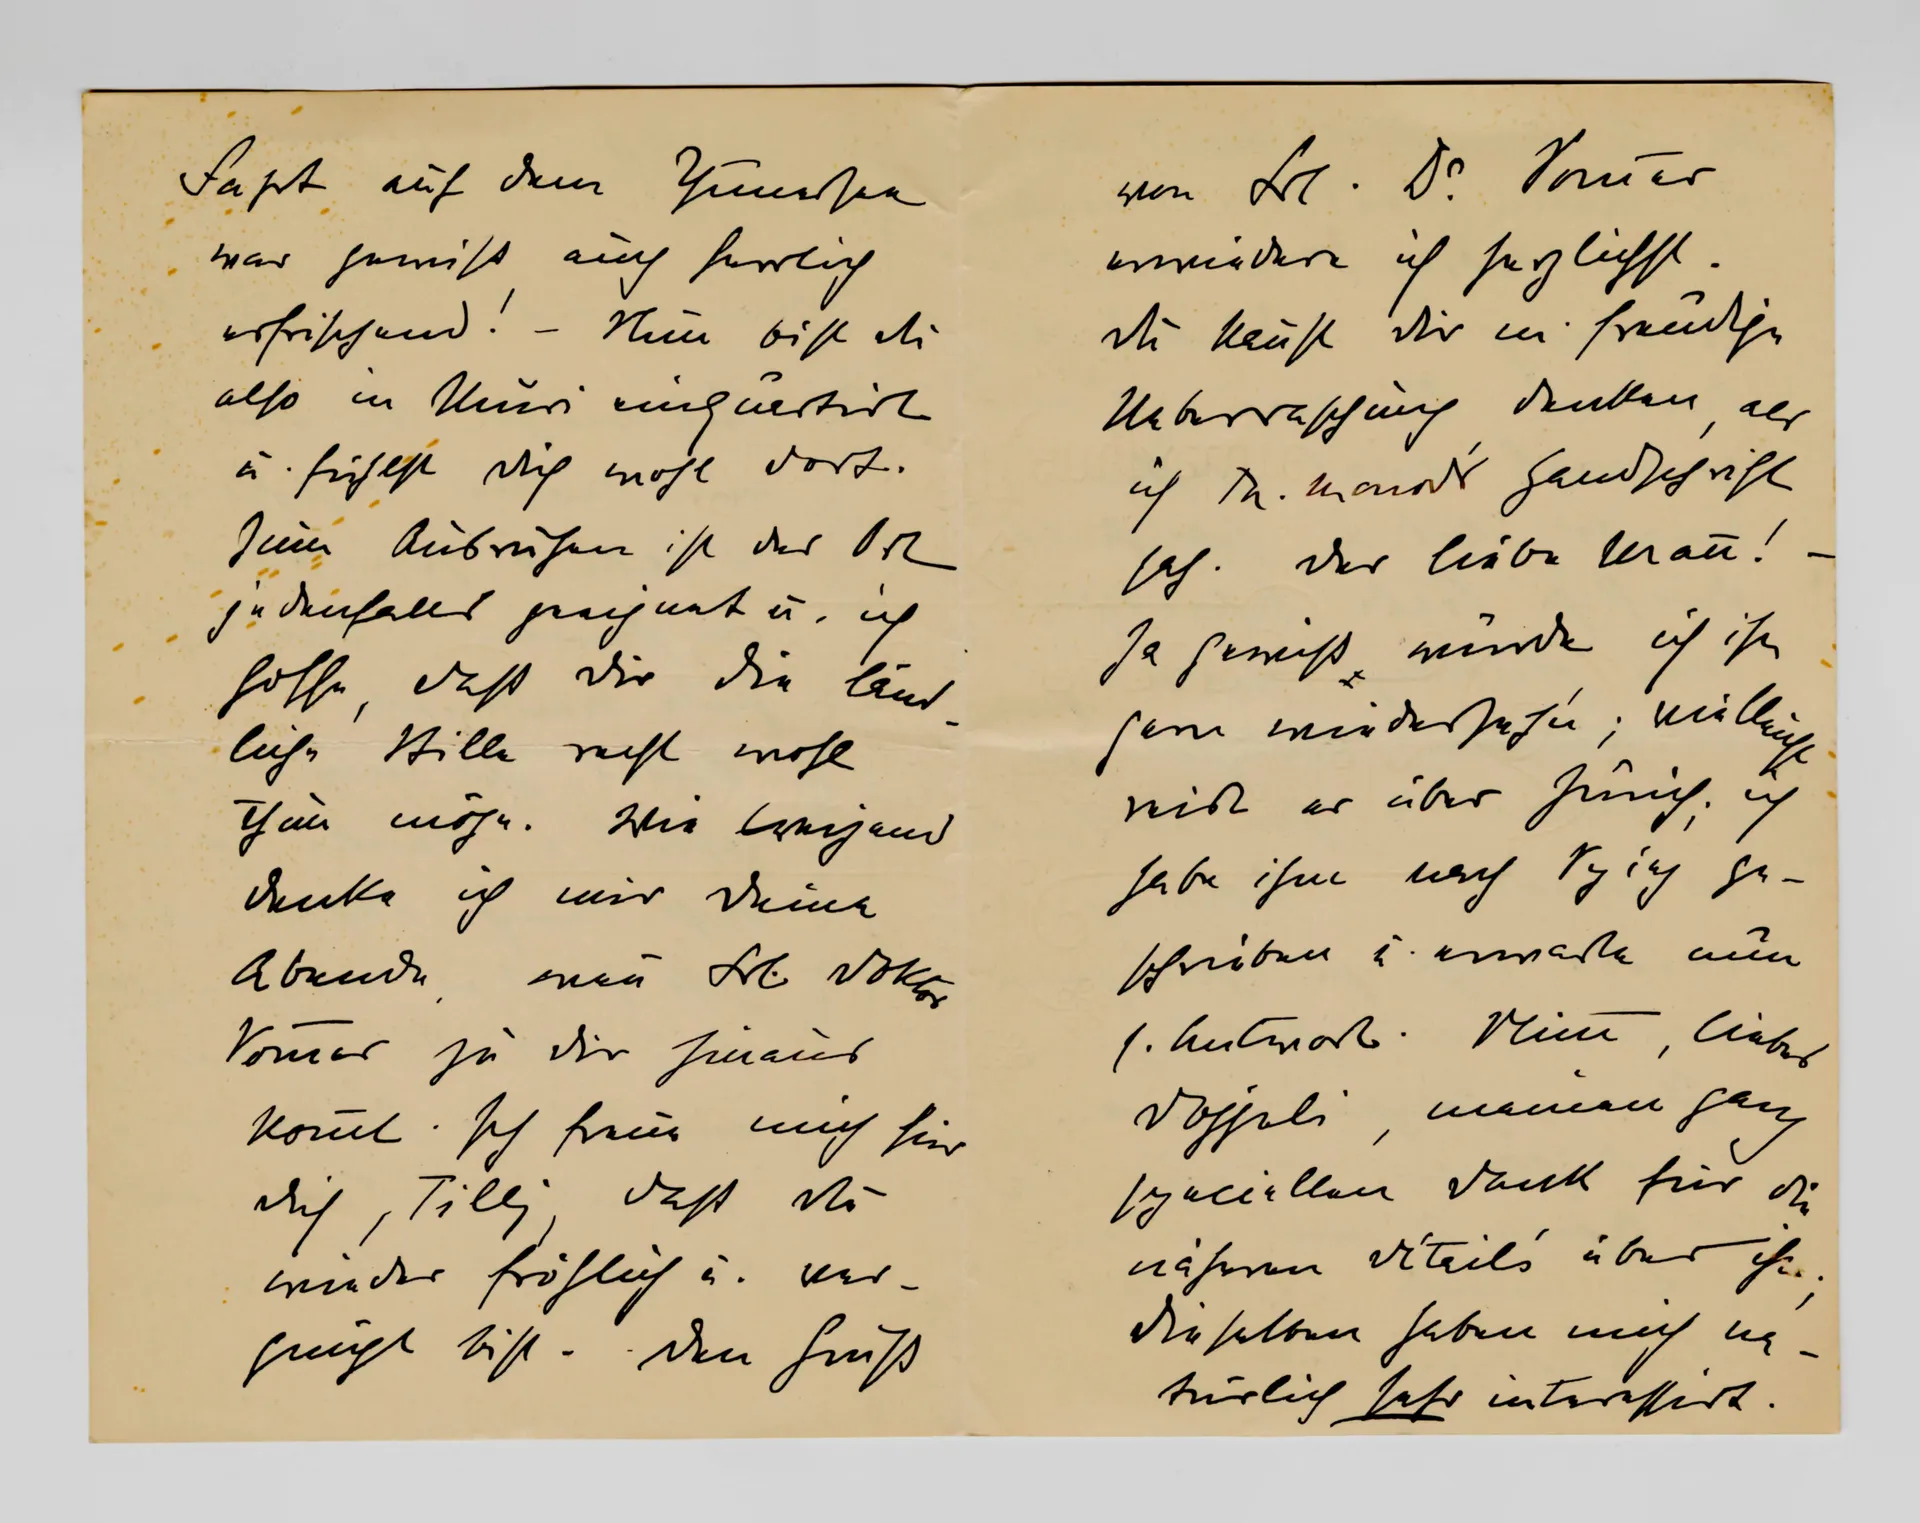 Fahrt auf dem Thunersee
war gewiß auch herrlich
erfrischend! – Nun bist du
also in Muri einquartirt
u. fühlst dich wohl dort.
Zum Ausruhen ist der Ort
jedenfalls geeignet u. ich
hoffe, daß dir die länd-
liche Stille recht wohl
thun möge. Wie
denke ich mir deine
Abende, wen̄ Frl. Doktor
Vom̄er zu dir hinaus
kom̄t. Ich freue mich für
dich, Tilly, daß du
wieder fröhlich u. ver-
gnügt bist. – Den Gruß
von Frl. Dr. Vom̄er
erwiedere ich herzlichst.
Du kan̄st dir m. freudige
Ueberraschung denken, als
ich Th. Monod's Handschrift
sah. Der liebe Man̄! –
Ja gewiß würde ich ihn
gern wiedersehn; vielleicht
reist er über Zürich; ich
habe ihm nach ge-
schrieben u. erwarte nun
s. Antwort. Nim̄, liebes
Doggeli, meinen ganz
speciellen Dank für die
näheren Détails über ihn;
dieselben haben mich na-
türlich sehr interessirt.